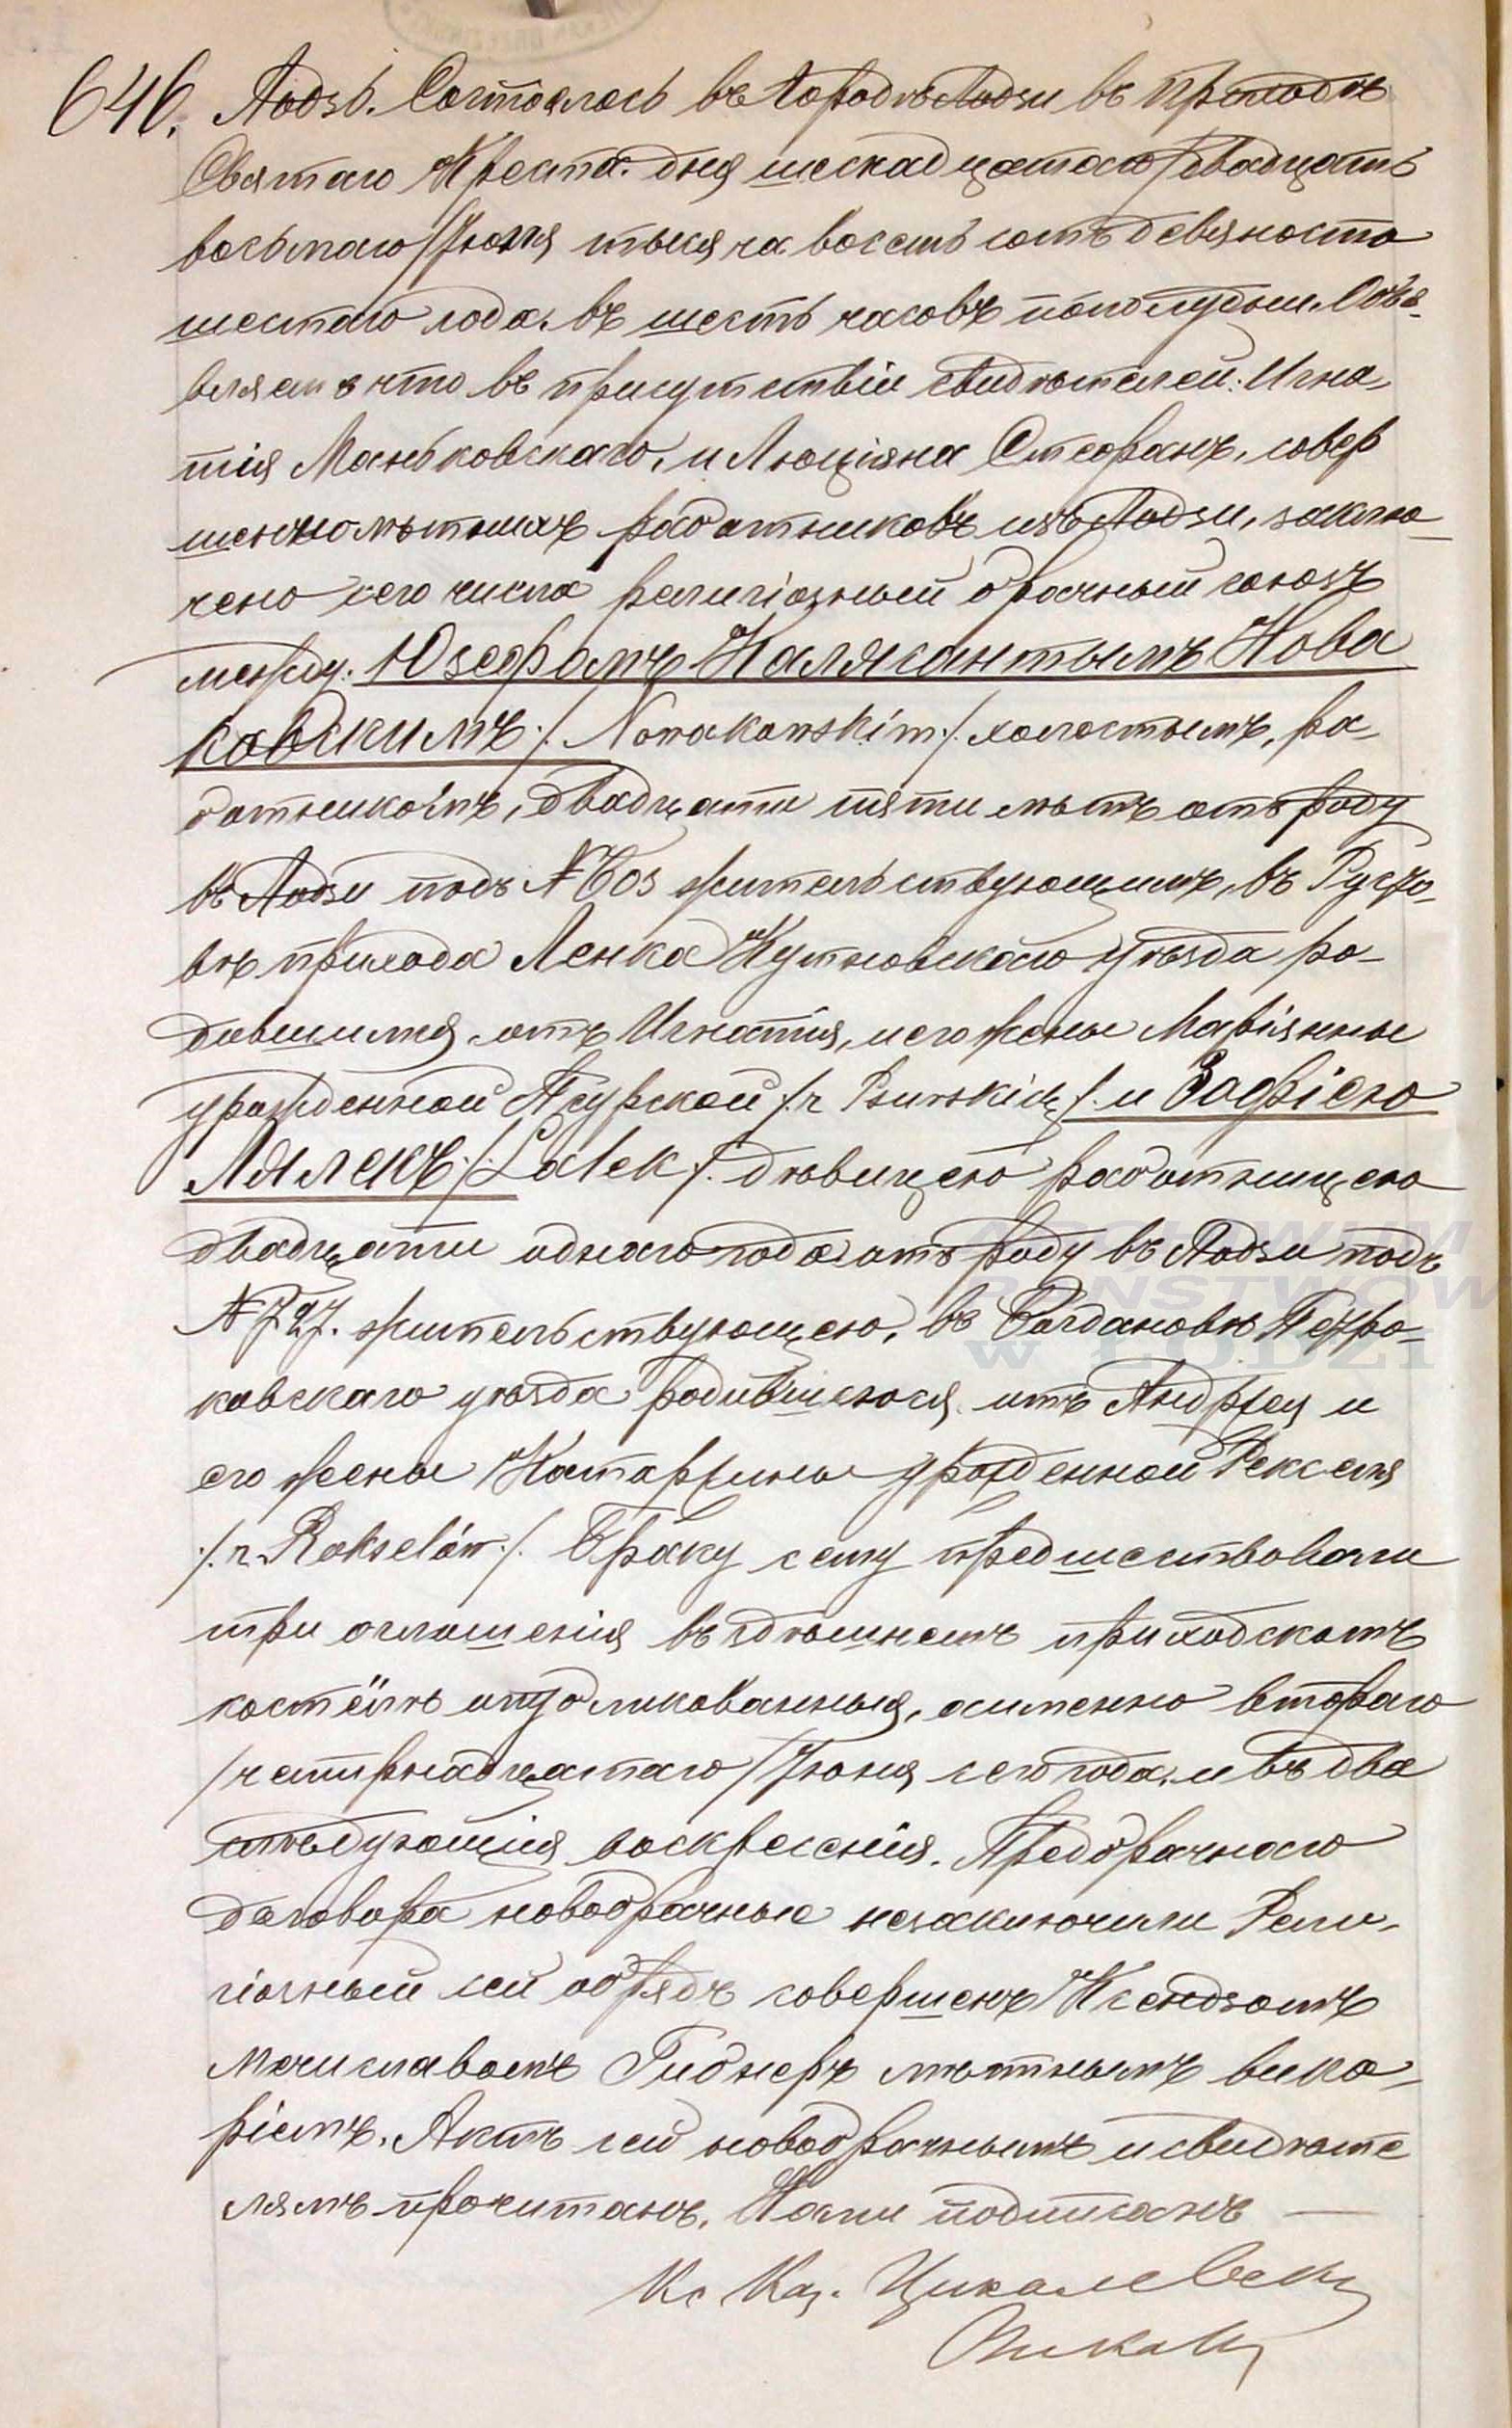 646. Лодзь. Состоялось въ Городѣ Лодзи въ приходѣ
Святаго Креста дня шеснадцатаго /двадцать
восьмаго/ Іюня тысяча восемь сотъ девяносто
шестаго года, въ шесть часовъ пополудни. Объя-
вляемъ что въ присутствіи свидѣтелей: Игна-
тія Маньковскаго, и Люціяна Стефанъ, совер
шеннолѣтнихъ работниковъ изъ Лодзи, заклю-
чено сего числа религіозный брачный союзъ
между: Юзефомъ Калясантымъ Нова
ковскимъ /: Nowakowskim :/ холостымъ, ра-
ботникомъ, двадцати пяти лѣтъ отъ роду
въ Лодзи подъ № 603 жительствующимъ, въ
вѣ прихода Ленка Кутновскаго уѣзда ро-
дившимся, отъ Игнатія, и его жены Маріянны
урожденной Псурской /: z Psurskich :/ и Зофіею
Лялекъ /: Lalek :/ дѣвицею работницею
двадцати одного года отъ роду въ Лодзи подъ
№ 727. жительствующею, въ Богдановѣ Петро-
ковскаго уѣзда родившеюся, отъ Андрея и
его жены Катаржины урожденной Рексель
/: z Rokselów :/. Браку сему предшествовали
три оглашенія въ здѣшнемъ приходскомъ
костёлѣ опубликованныя, а именно втораго
/четырнадцатаго/ Іюня сего года, и въ два
слѣдующія воскресенія. Предбрачнаго
договора новобрачные незаключили. Рели-
гіозный сей обрядъ совершенъ Ксендзомъ
Мечиславомъ Гибнеръ мѣстнымъ вика-
ріемъ. Актъ сей новобрачнымъ и свидѣте
лямъ прочитанъ, Нами подписанъ —
Кс Каз.